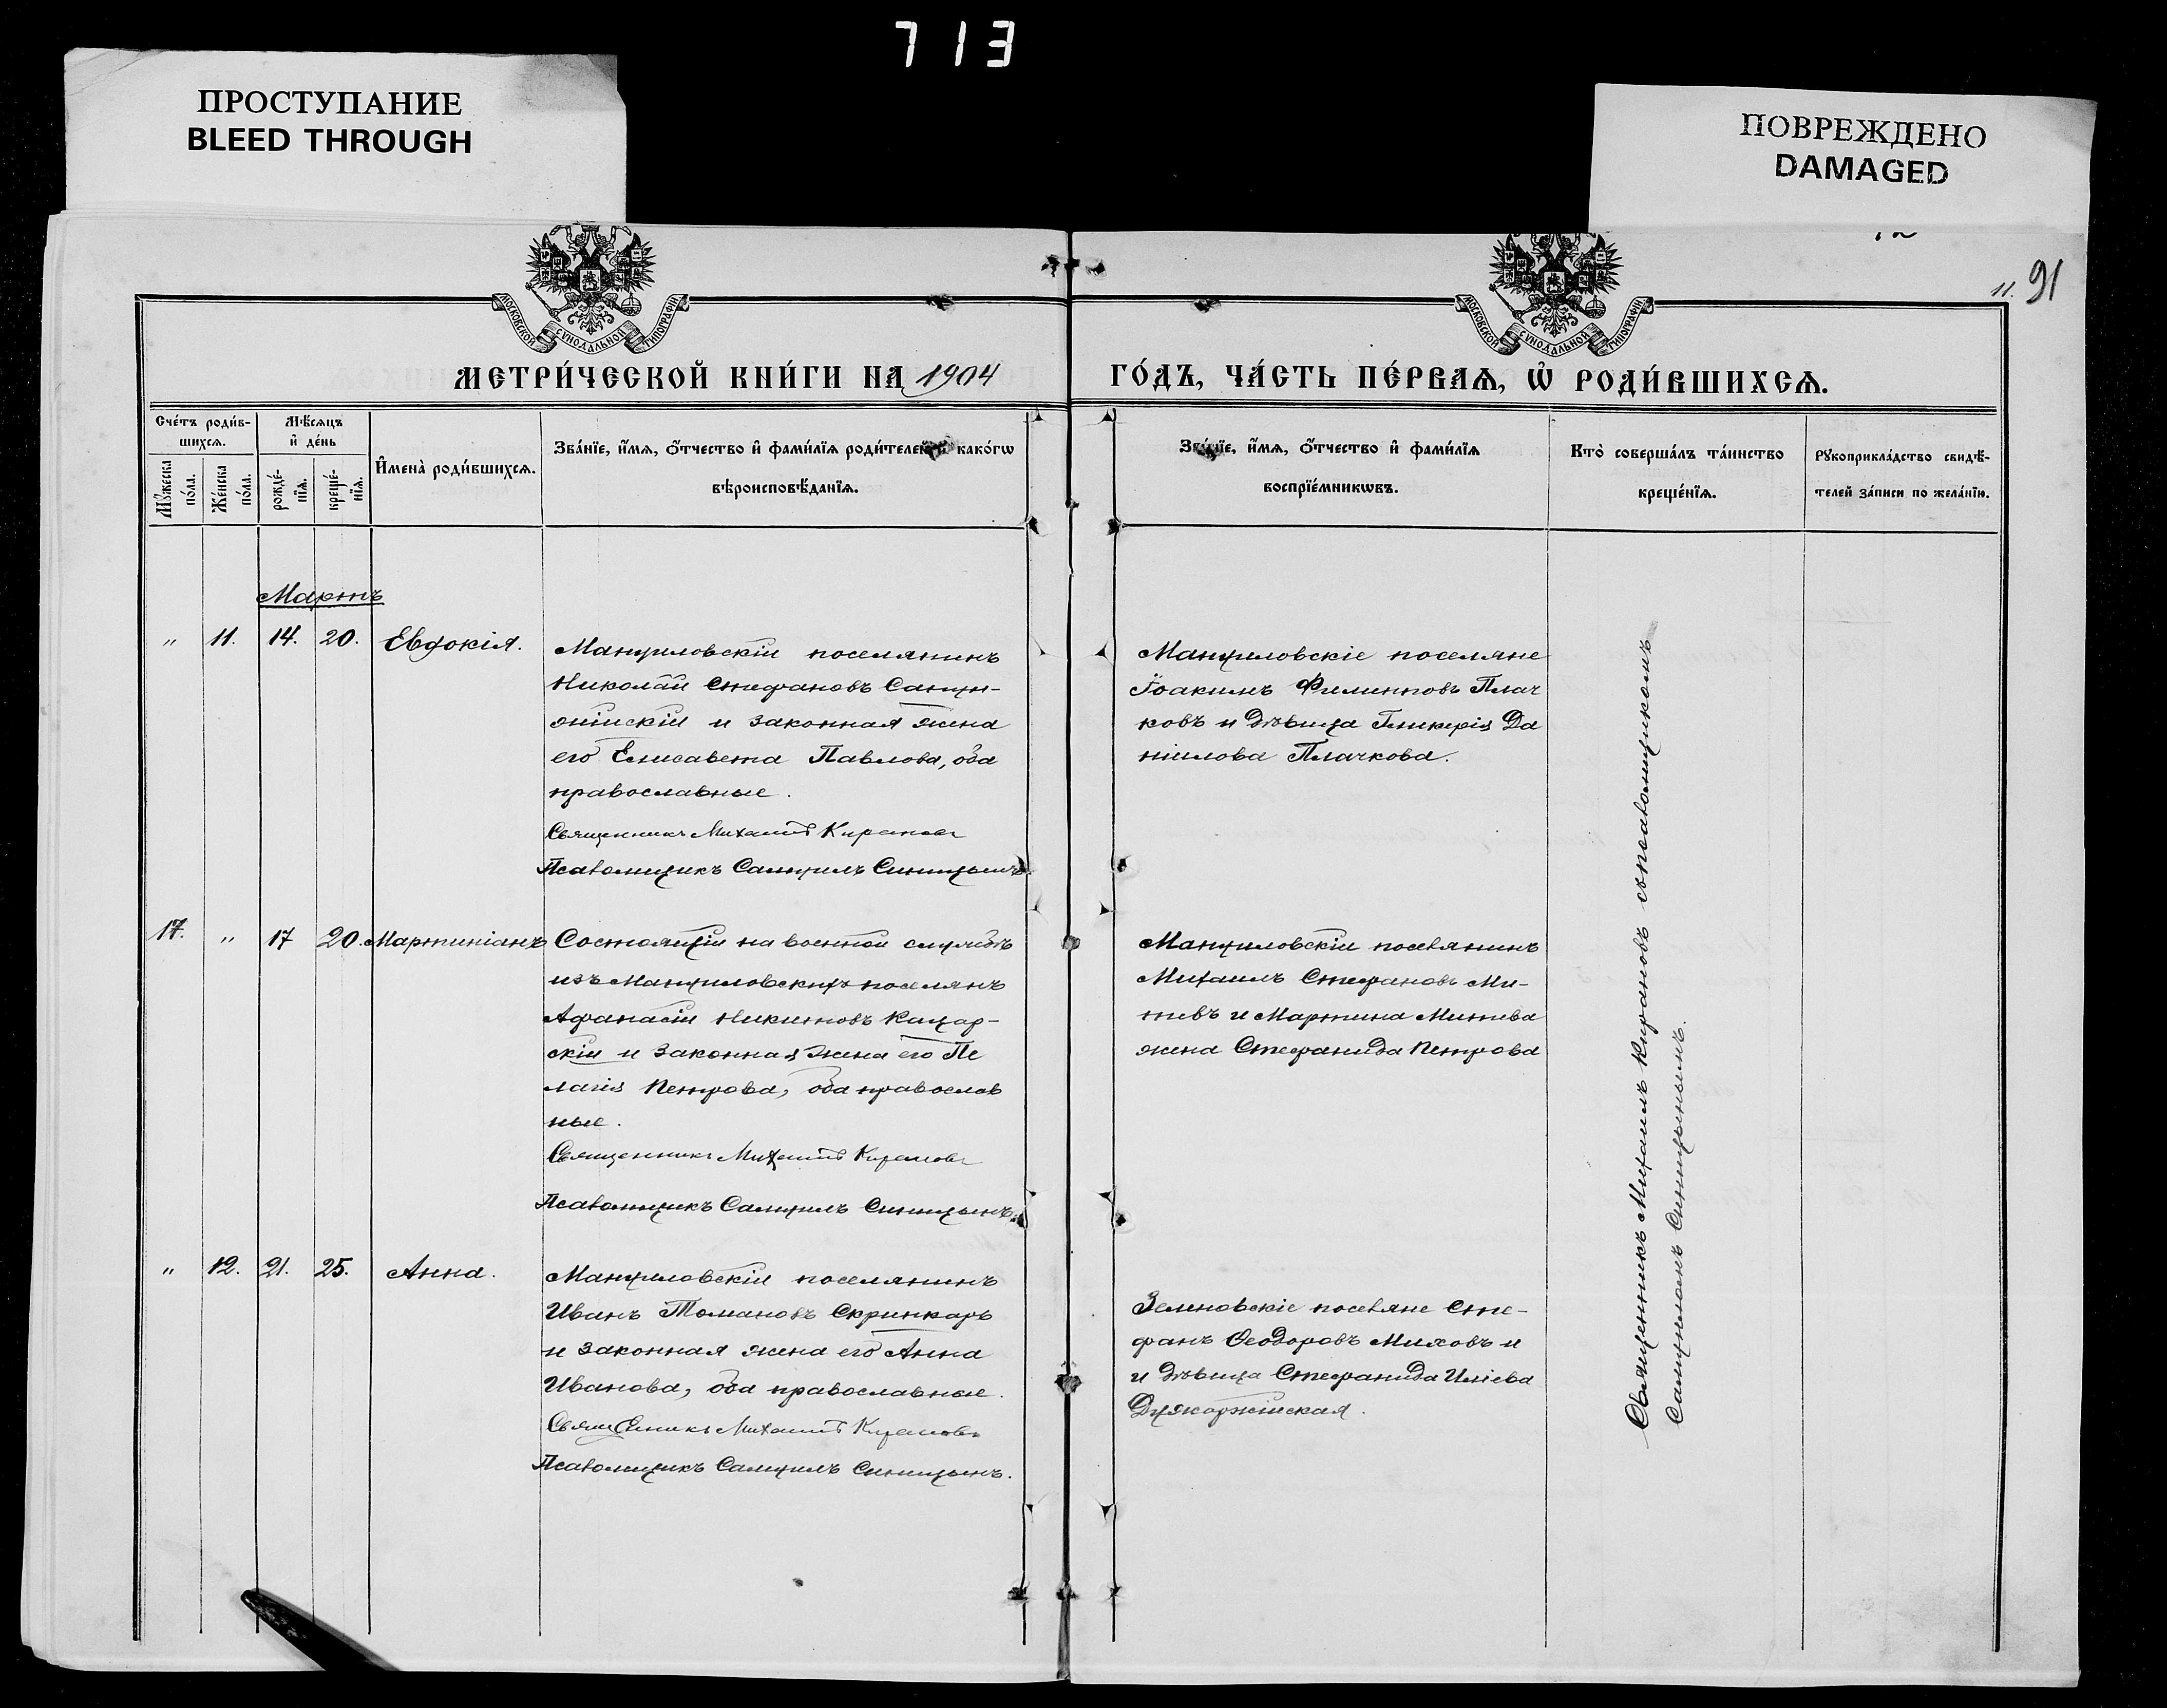 713
ПРОСТУПАНИЕ
BLEED THROUGH
ПОВРЕЖДЕНО
DAMAGED
11. 91
МОСКОВСКОЙ СѴНОДАЛЬНОЙ ТИПОГРАФІИ
МОСКОВСКОЙ СѴНОДАЛЬНОЙ ТИПОГРАФІИ
МЕТРИ́ЧЕСКОЙ КНИ́ГИ НА 1904
ГО́ДЪ, ЧА́СТЬ ПЕ́РВАѦ, Ѽ РОДИ́ВШИХСѦ.
Сче́тъ роди́в-
шихсѧ.
Мꙋ́жеска по́ла.
Же́нска по́ла.
Мѣ́сѧцъ
и҆ де́нь
рожде́-
нїѧ.
креще́-
нїѧ.
И҆мена̀ роди́вшихсѧ.
Зва́нїе, и҆́мѧ, ѻ҆́тчество и҆ фами́лїѧ роди́телей и҆ како́гѡ
вѣроисповѣ́данїѧ.
Зва́нїе, и҆́мѧ, ѻ҆́тчество и҆ фами́лїѧ
воспрїе́мникѡвъ.
Кто̀ соверша́лъ та́инство
креще́нїѧ.
Рꙋкоприкла́дство свидѣ́-
телей за́писи по жела́нїю.
Мартъ
" 11. 14. 20. Евдокія.
Мануиловскій поселянинъ
Николай Стефановъ
и законная жена
его Елисавета Павлова, оба
православные.
Священникъ Михаилъ Кирановъ
Псаломщикъ Самуилъ Синицынъ.
Мануиловскіе поселяне
Іоакимъ Филипповъ Плач
ковъ и дѣвица Гликерія Да
ніилова Плачкова.
17. " 17 20. Мартиніанъ
Состоящій на военной службѣ
изъ Мануиловскихъ поселянъ
Афанасій Никитовъ Кацар-
скій и законная жена его Пе
лагія Петрова, оба православ
ные.
Священникъ Михаилъ Кирановъ
Псаломщикъ Самуилъ Синицынъ.
Мануиловскій поселянинъ
Михаилъ Стефановъ Ми-
тевъ и Мартина Митева
жена Стефанида Петрова
" 12. 21. 25. Анна.
Мануиловскій поселянинъ
Иванъ Томановъ Скрипкарь
и законная жена его Анна
Иванова, оба православные.
Священникъ Михаилъ Кирановъ
Псаломщикъ Самуилъ Синицынъ.
Зеленовскіе поселяне Сте-
фанъ Ѳеодоровъ Миховъ и
и дѣвица Стефанида Иліева
Священникъ Михаилъ Кирановъ съ псаломщикомъ
Самуиломъ Синицынымъ.